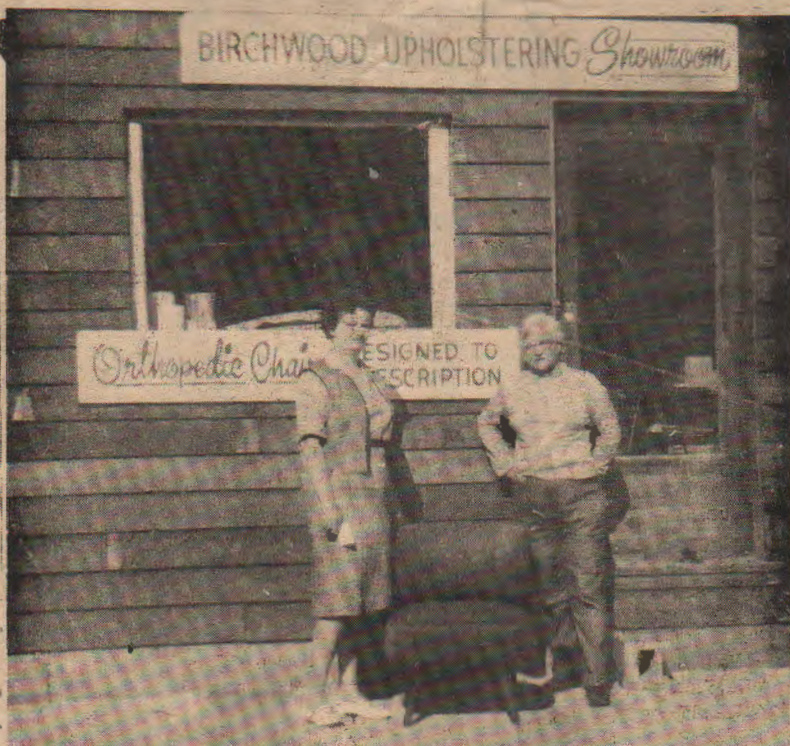 BIRCHWOOD UPHOLSTERING Showroom
Orthopedic Chai ESIGNED TO
SCRIPTION